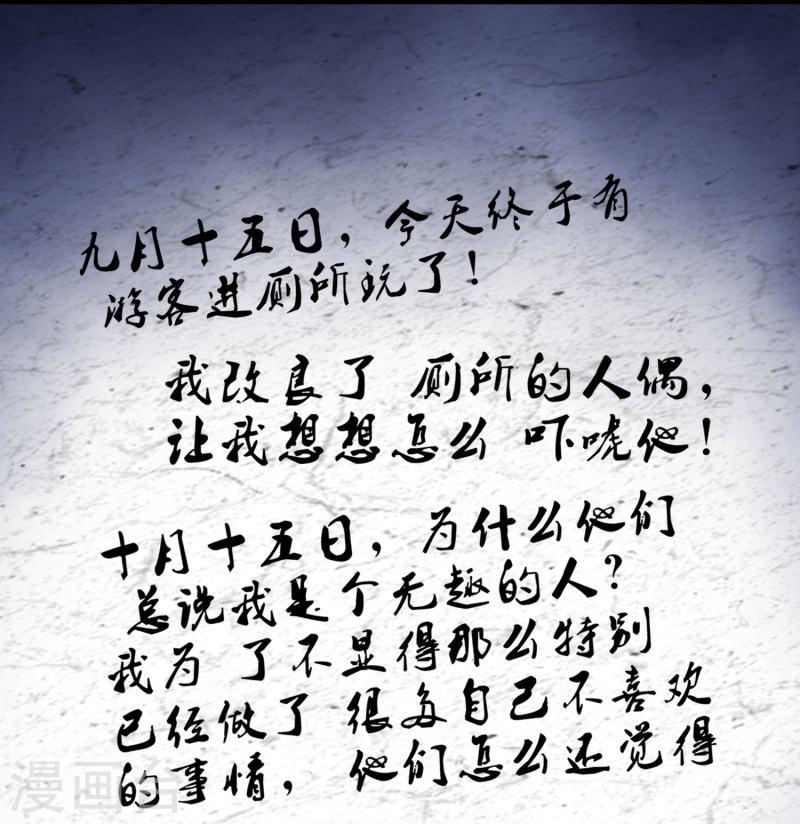 九月十五日，今天终于有
游客进厕所玩了！
我改良了 厕所的人偶，
让我想想怎么 吓唬他！
十月十五日，为什么他们
总说我是个无趣的人？
我为 了不显得那么特别
已经做了 很多自己不喜欢
的事情， 他们怎么还觉得
漫画台